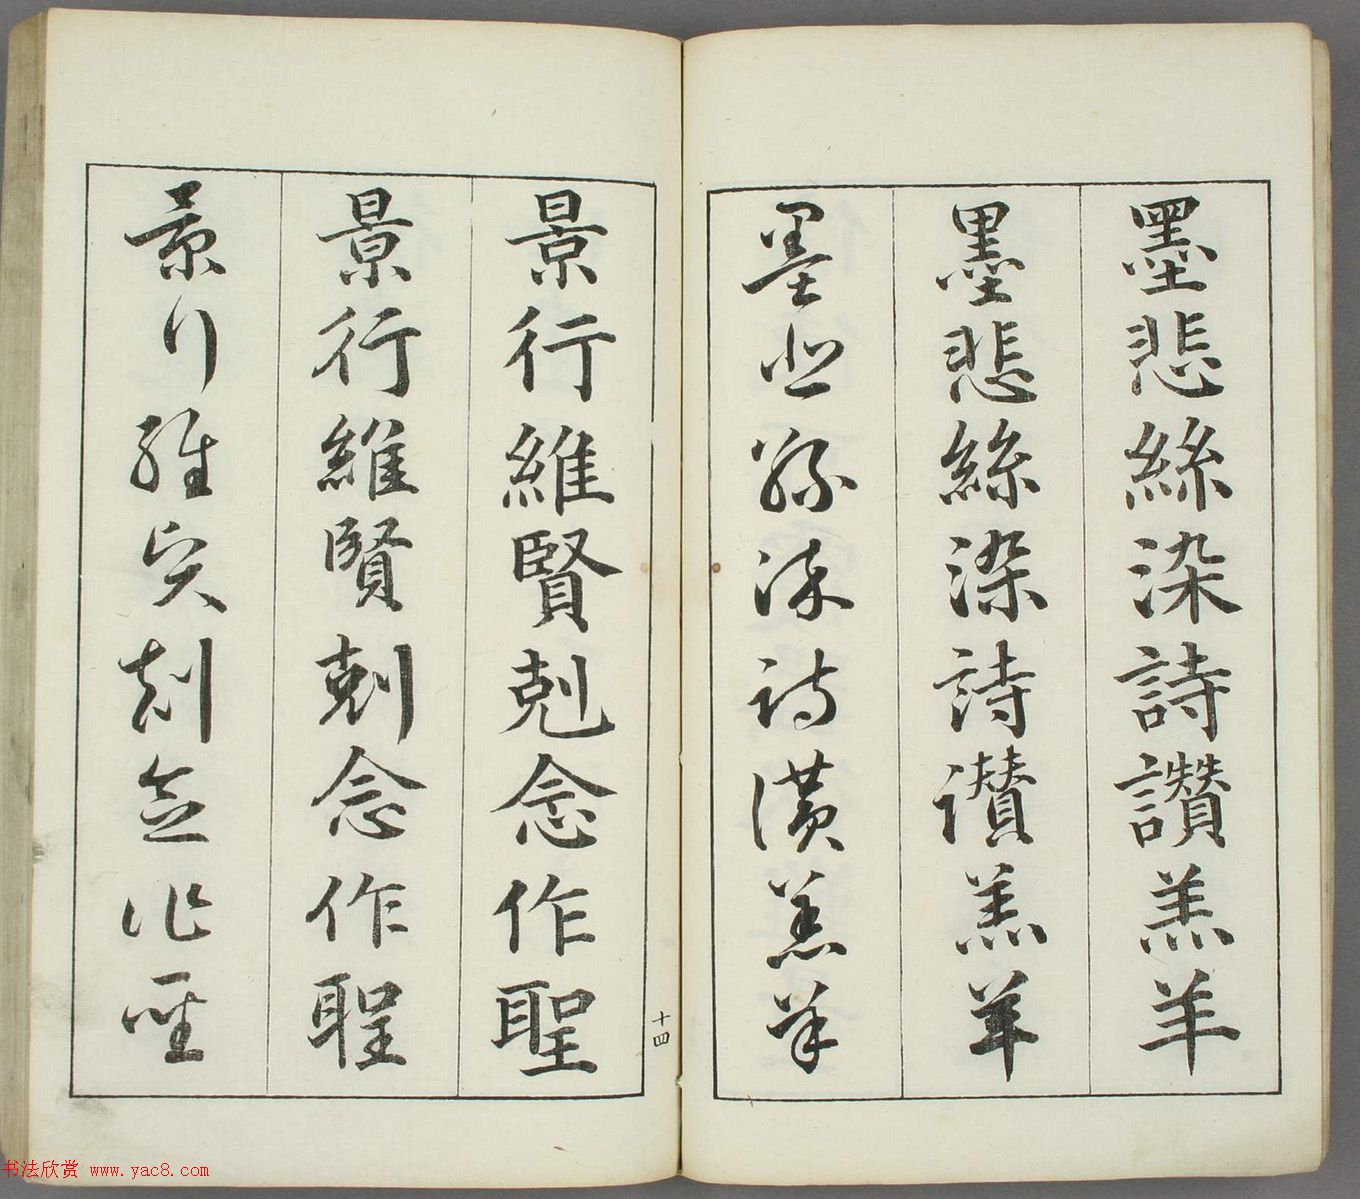 墨悲絲染詩讚羔羊
墨悲絲染詩讃羔羊
墨悲絲染詩讃羔羊
景行維賢剋念作聖
景行維賢剋念作聖
景行維賢剋念作聖
十四
书法欣赏 www.yac8.com